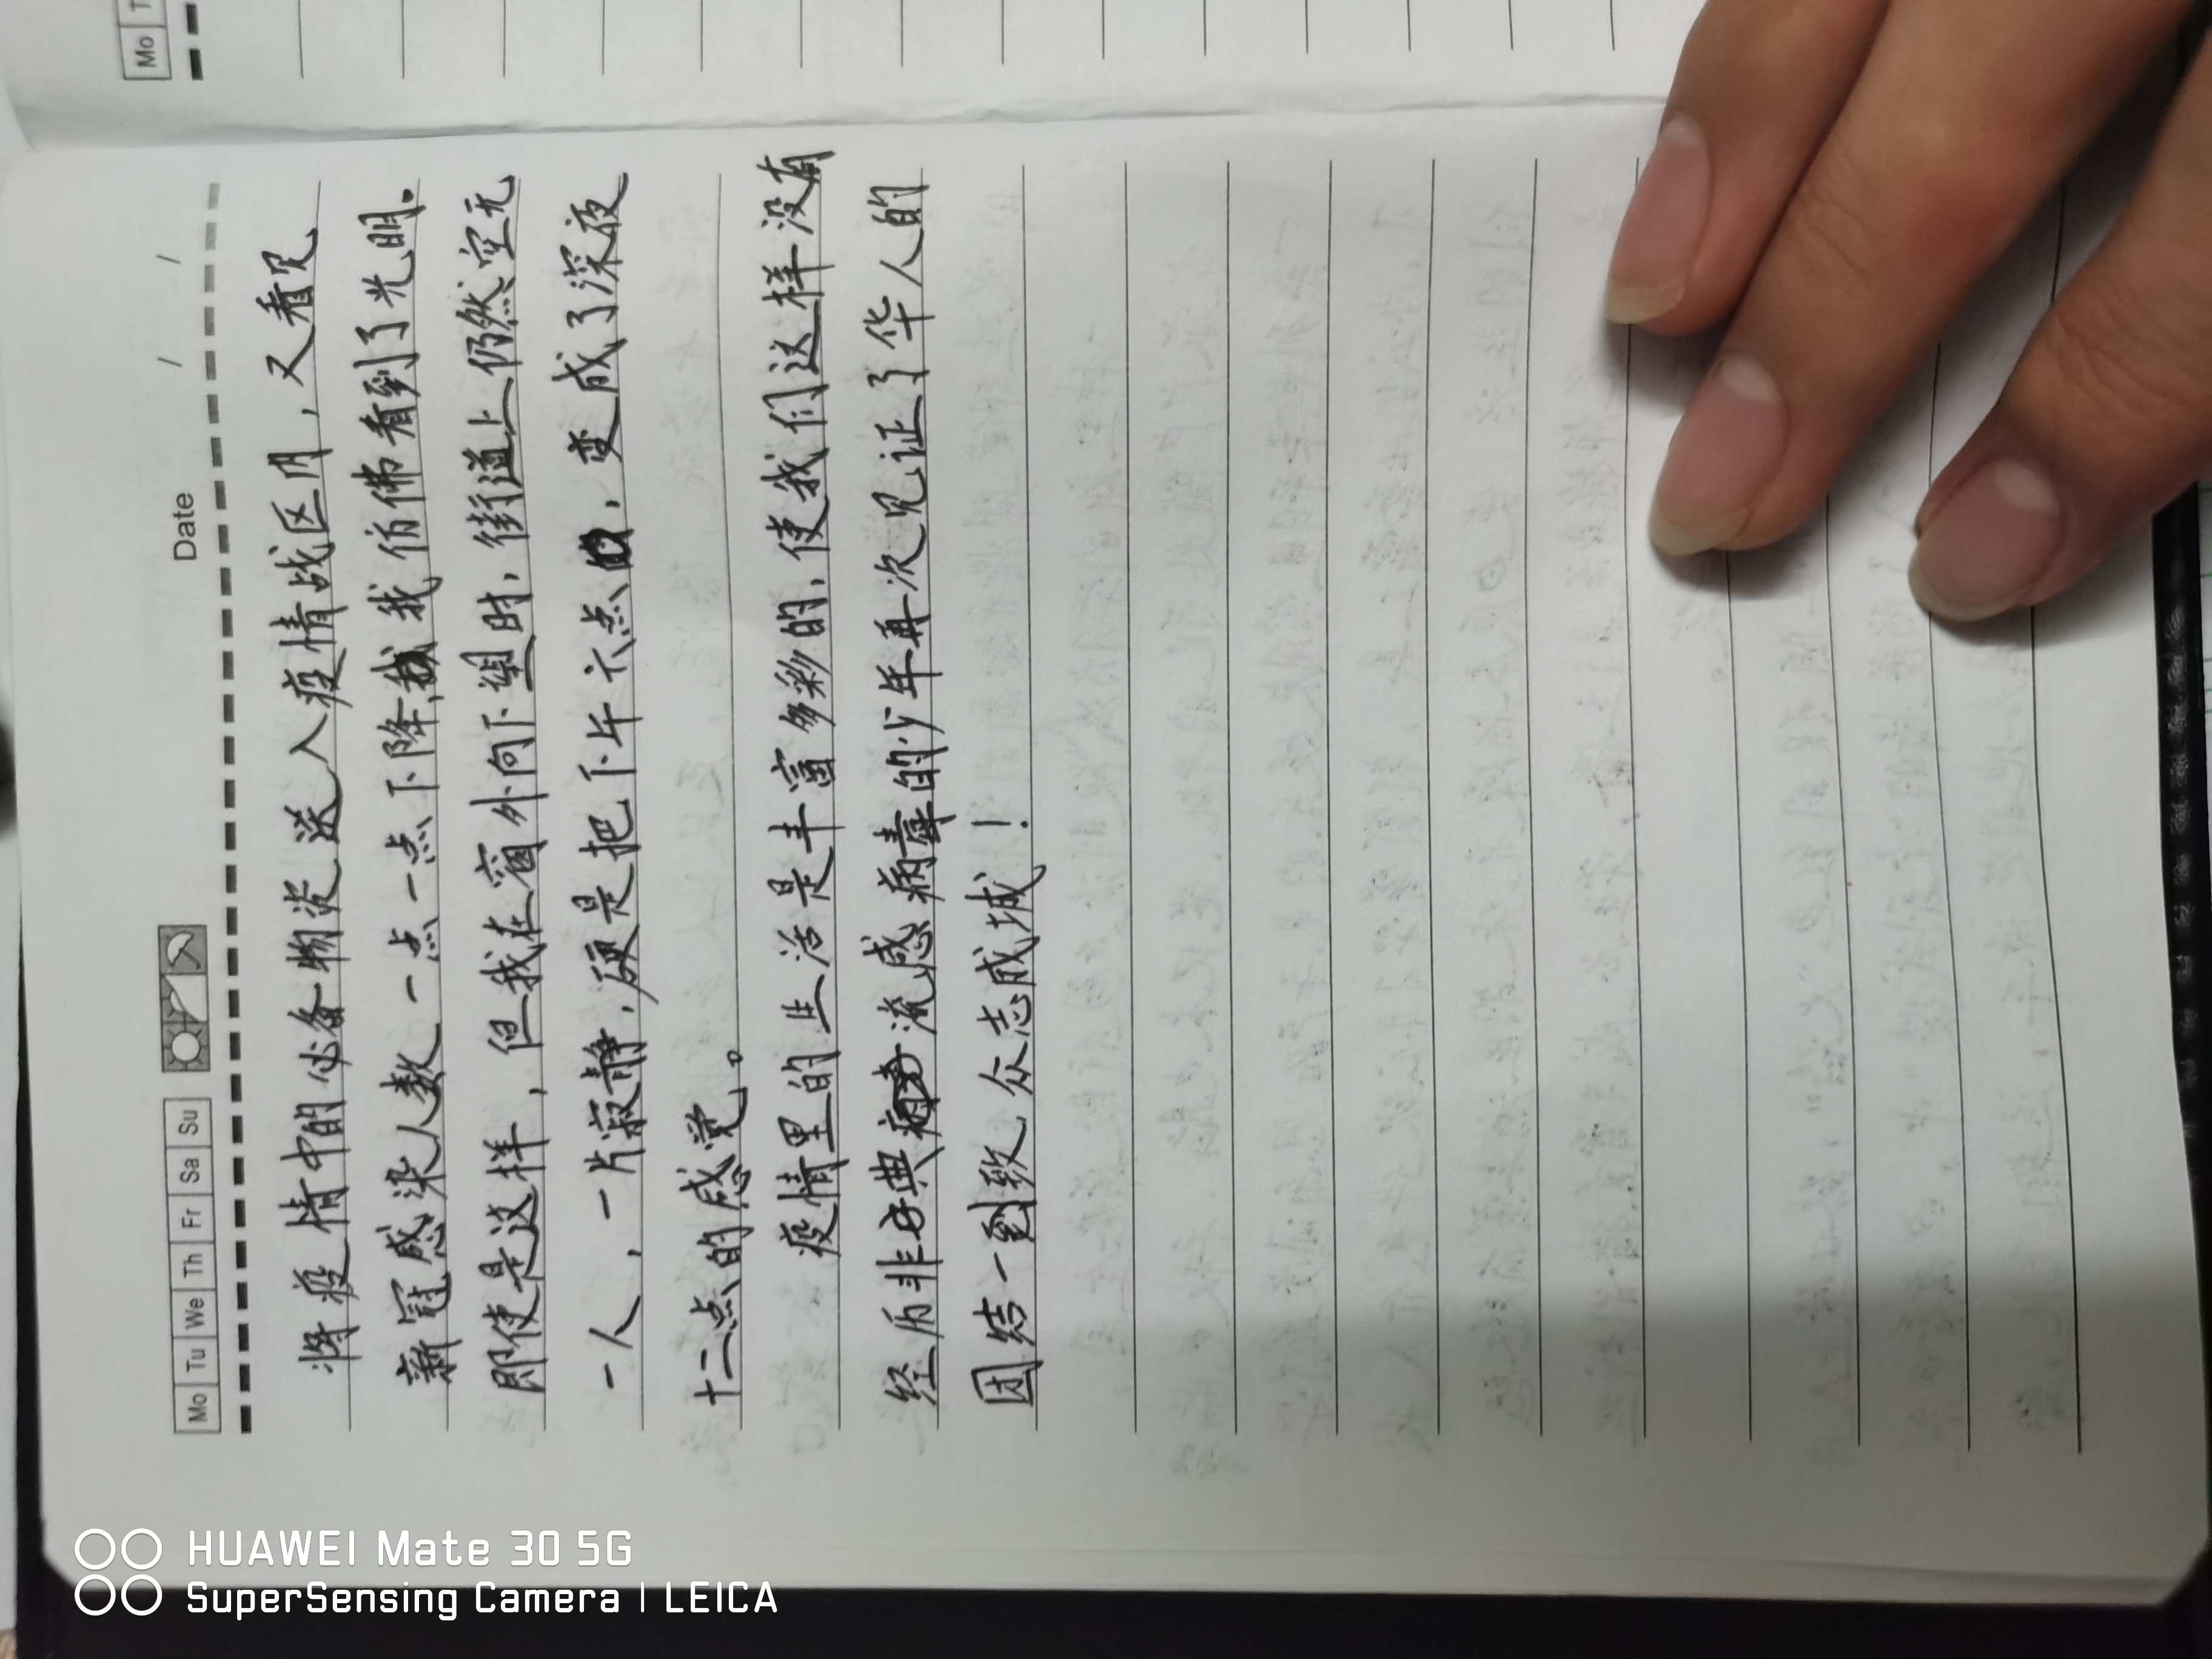 Mo Tu We Th Fr Sa Su
Date / /
将疫情中的必备物资送入疫情战区月，又看见
新冠感染人数一点一点下降，我仿佛看到了光明。
即使是这样，但我在窗外向下望时，街道上仍然空无
一人，一片寂静，硬是把下午六点，变成了深夜
十二点的感觉。
疫情里的生活是丰富多彩的，使我们这样没有
经历非典流感病毒的少年再次见证了华人的
团结一致，众志成城！
Mo
HUAWEI Mate 30 5G
SuperSensing Camera | LEICA